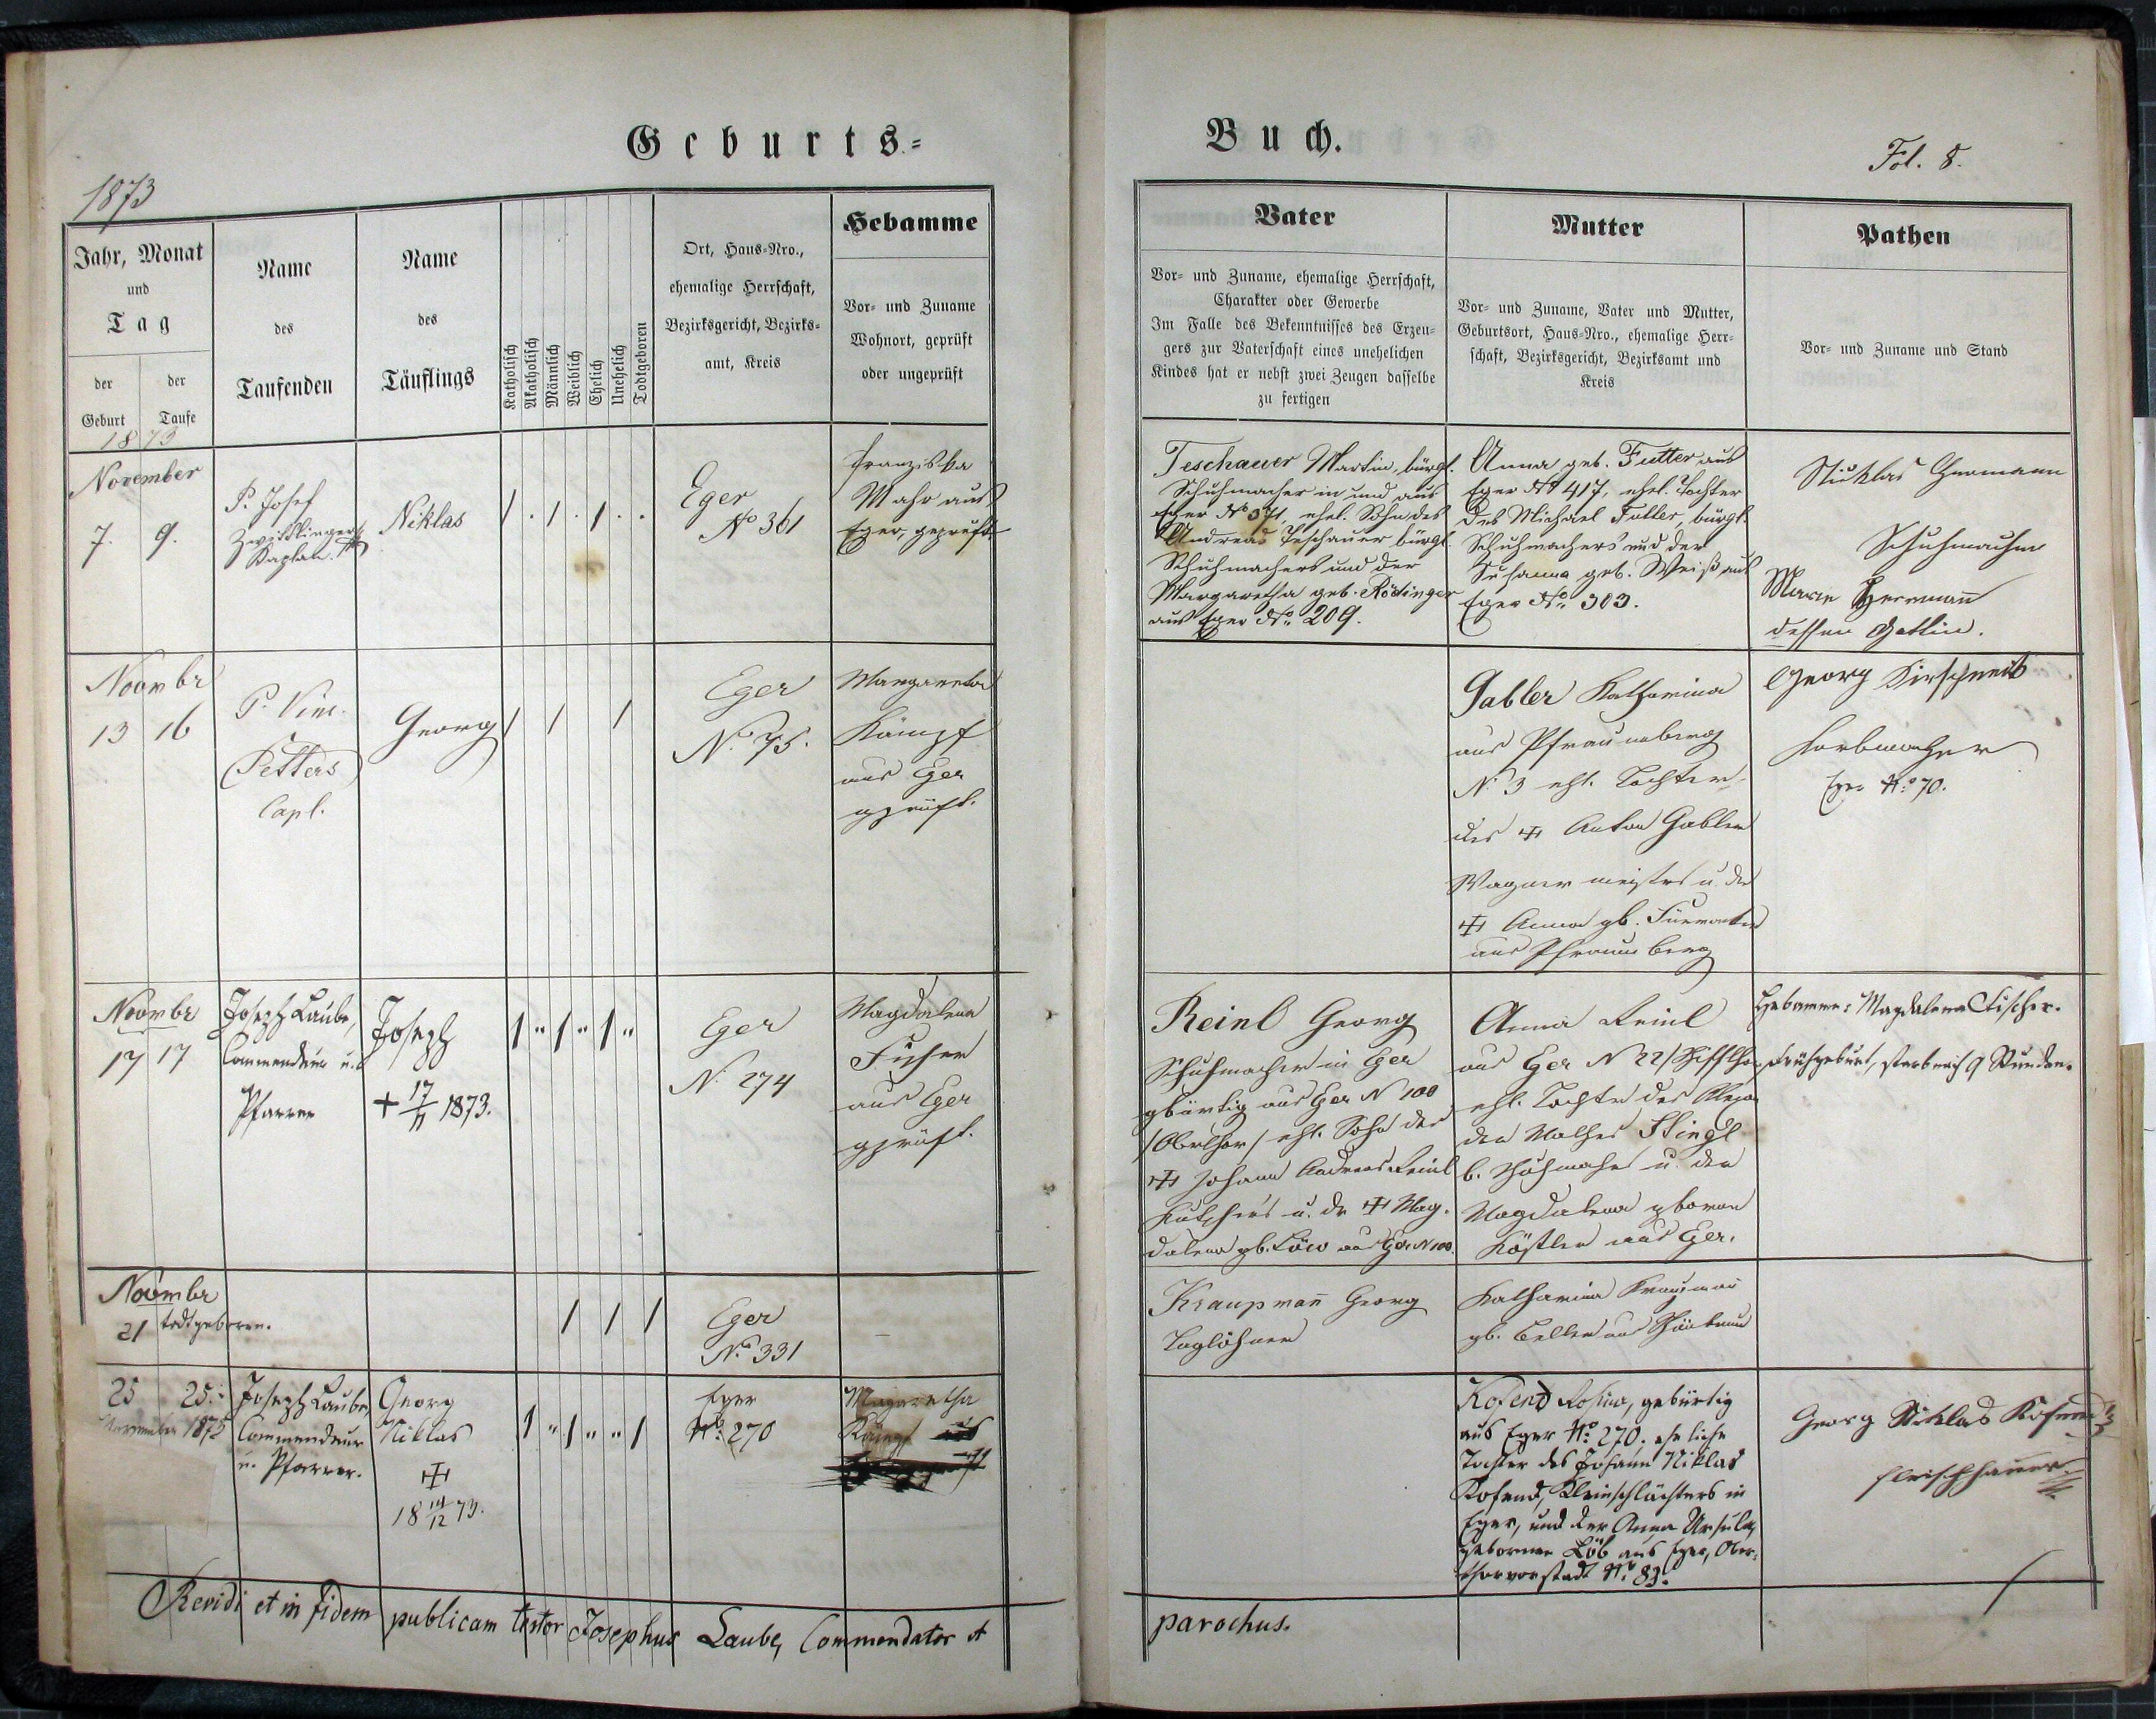 Geburts-
Buch.
Fol. 8.
1873
Jahr, Monat
und
Tag
der
Geburt
der
Taufe
Name
des
Taufenden
Name
des
Täuflings
Katholisch
Akatholisch
Männlich
Weiblich
Ehelich
Unehelich
Todtgeboren
Ort, Haus-Nro.,
ehemalige Herrschaft,
Bezirksgericht, Bezirks-
amt, Kreis
Hebamme
Vor- und Zuname
Wohnort, geprüft
oder ungeprüft
Vater
Vor- und Zuname, ehemalige Herrschaft,
Charakter oder Gewerbe
Im Falle des Bekenntnisses des Erzeu-
gers zur Vaterschaft eines unehelichen
Kindes hat er nebst zwei Zeugen dasselbe
zu fertigen
Mutter
Vor- und Zuname, Vater und Mutter,
Geburtsort, Haus-Nro., ehemalige Herr-
schaft, Bezirksgericht, Bezirksamt und
Kreis
Pathen
Vor- und Zuname und Stand
1873
November
7. 9.
P. Josef
Kaplan.
Niklas
Eger
No 361
Franziska
Mahr aus
Eger, geprüft
Teschauer Martin, bürgl.
Schuhmacher in und aus
Eger No 371, ehel. Sohn des
Andreas Teschauer bürgl.
Schuhmachers und der
Margaretha geb. Rödinger
aus Eger No. 209.
Anna geb. Futter aus
Eger No 417, ehel. Tochter
des Michael Futter, bürgl.
Schuhmachers und der
Susanna geb. Weiß aus
Eger No. 303.
Niklas Hermann
Schuhmacher
Marie Herrmann
dessen Gattin.
Novmbr
13 16
P. Vinc.
Petters
Capl.
Georg
Eger
N. 75.
Margareta
Kämpf
aus Eger
geprüft.
Gabler Katharina
aus Pfraumberg
N. 3 ehl. Tochter
des Anton Gabler
Wagnermeisters u. der
Anna gb.
aus Pfraumberg
Georg Kirschneck
Korbmacher
Eger No. 70.
Novmbr
17 17
Joseph Laube,
Commendeur u.
Pfarrer
Joseph
+ 17/11 1873.
Eger
N. 274
Magdalena
Fischer
aus Eger
geprüft.
Reinl Georg
Schuhmacher in Eger
gebürtig aus Eger N 100
/Oberthor/ ehl. Sohn des
Johann Andreas Reinl
Kutschers u. der Mag-
dalena gb. Löw aus Eger N 100.
Anna Reinl
aus Eger N 22 /Schiffthor/
ehl. Tochter des
Stingl
b. Schuhmacher u. der
Magdalena geboren
Köstler aus Eger.
Hebamme: Magdalena Fischer.
Frühgeburt, starb nach 9 Stunden.
Novmbr
21 todtgeboren.
Eger
No. 331
Kraupmann Georg
Taglöhner
Katharina Kraupman
gb. aus
25 25.
November 1873
Joseph Laube,
Commendeur
u. Pfarrer.
Georg
Niklas
18 14/12 73.
Eger
No. 270
Margaretha
Kämpf
Kosend Rosina, gebürtig
aus Eger No. 270. eheliche
Tochter des Johann Niklas
Kosend, Kleinschlächters in
Eger, und der Anna Ursula,
gebornen Löb aus Eger, Ober-
thorvorstadt No. 83.
Georg Niklas Kosend
Fleischhauer
Revidi et in fidem publicam testor Josephus Laube, Commendator et
parochus.